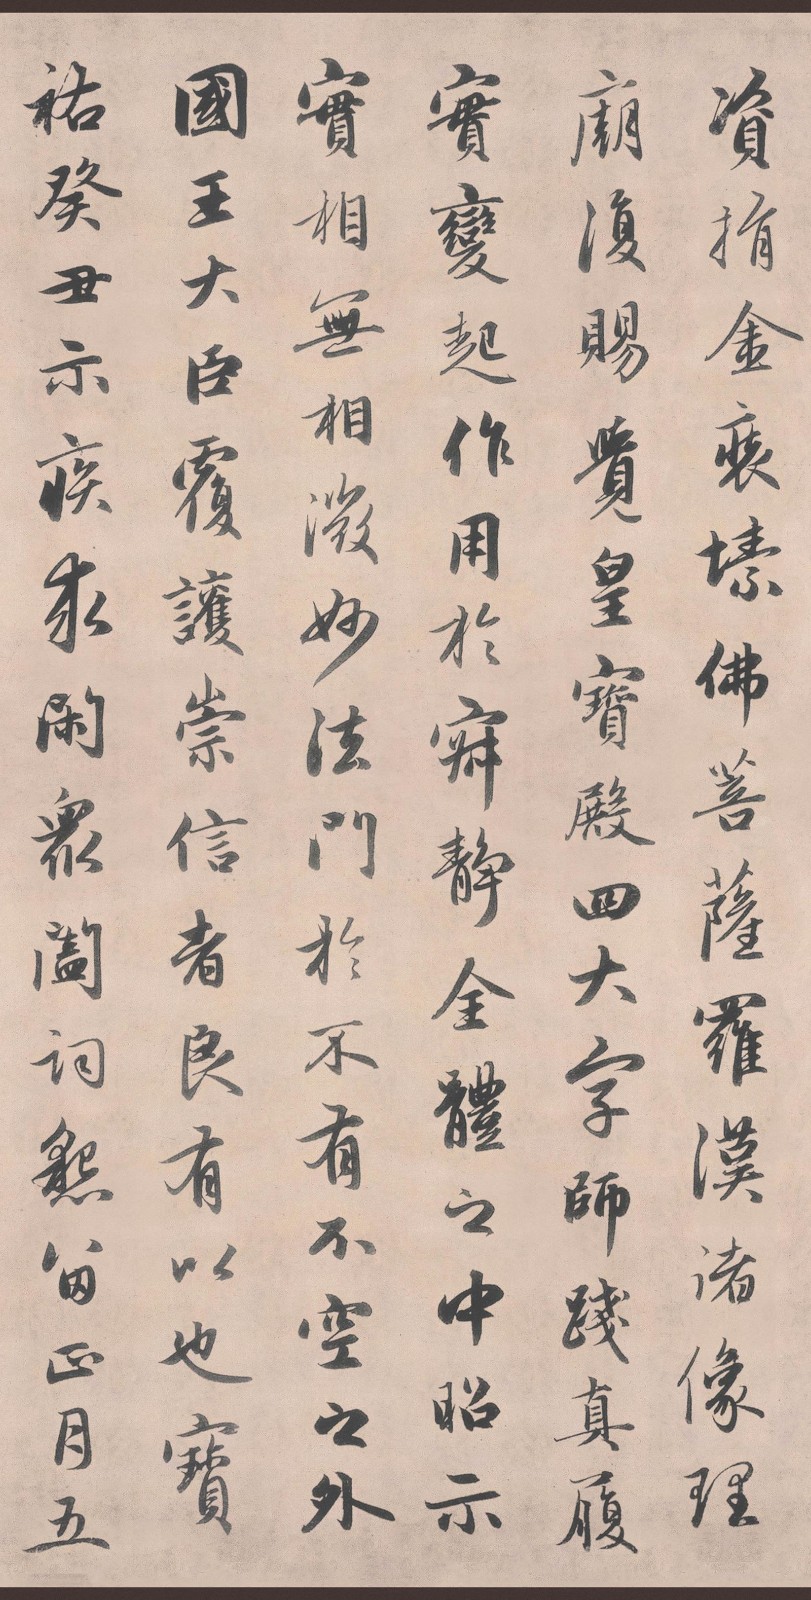 資捐金裝塐佛菩薩羅漢諸像理
廟復賜覺皇寶殿四大字師踐真履
實變起作用於寂靜全體之中昭示
實相無相微妙法門於不有不空之外
國王大臣覆護崇信者良有以也寶
祐癸丑示疾求閑衆闔詞懇留正月五